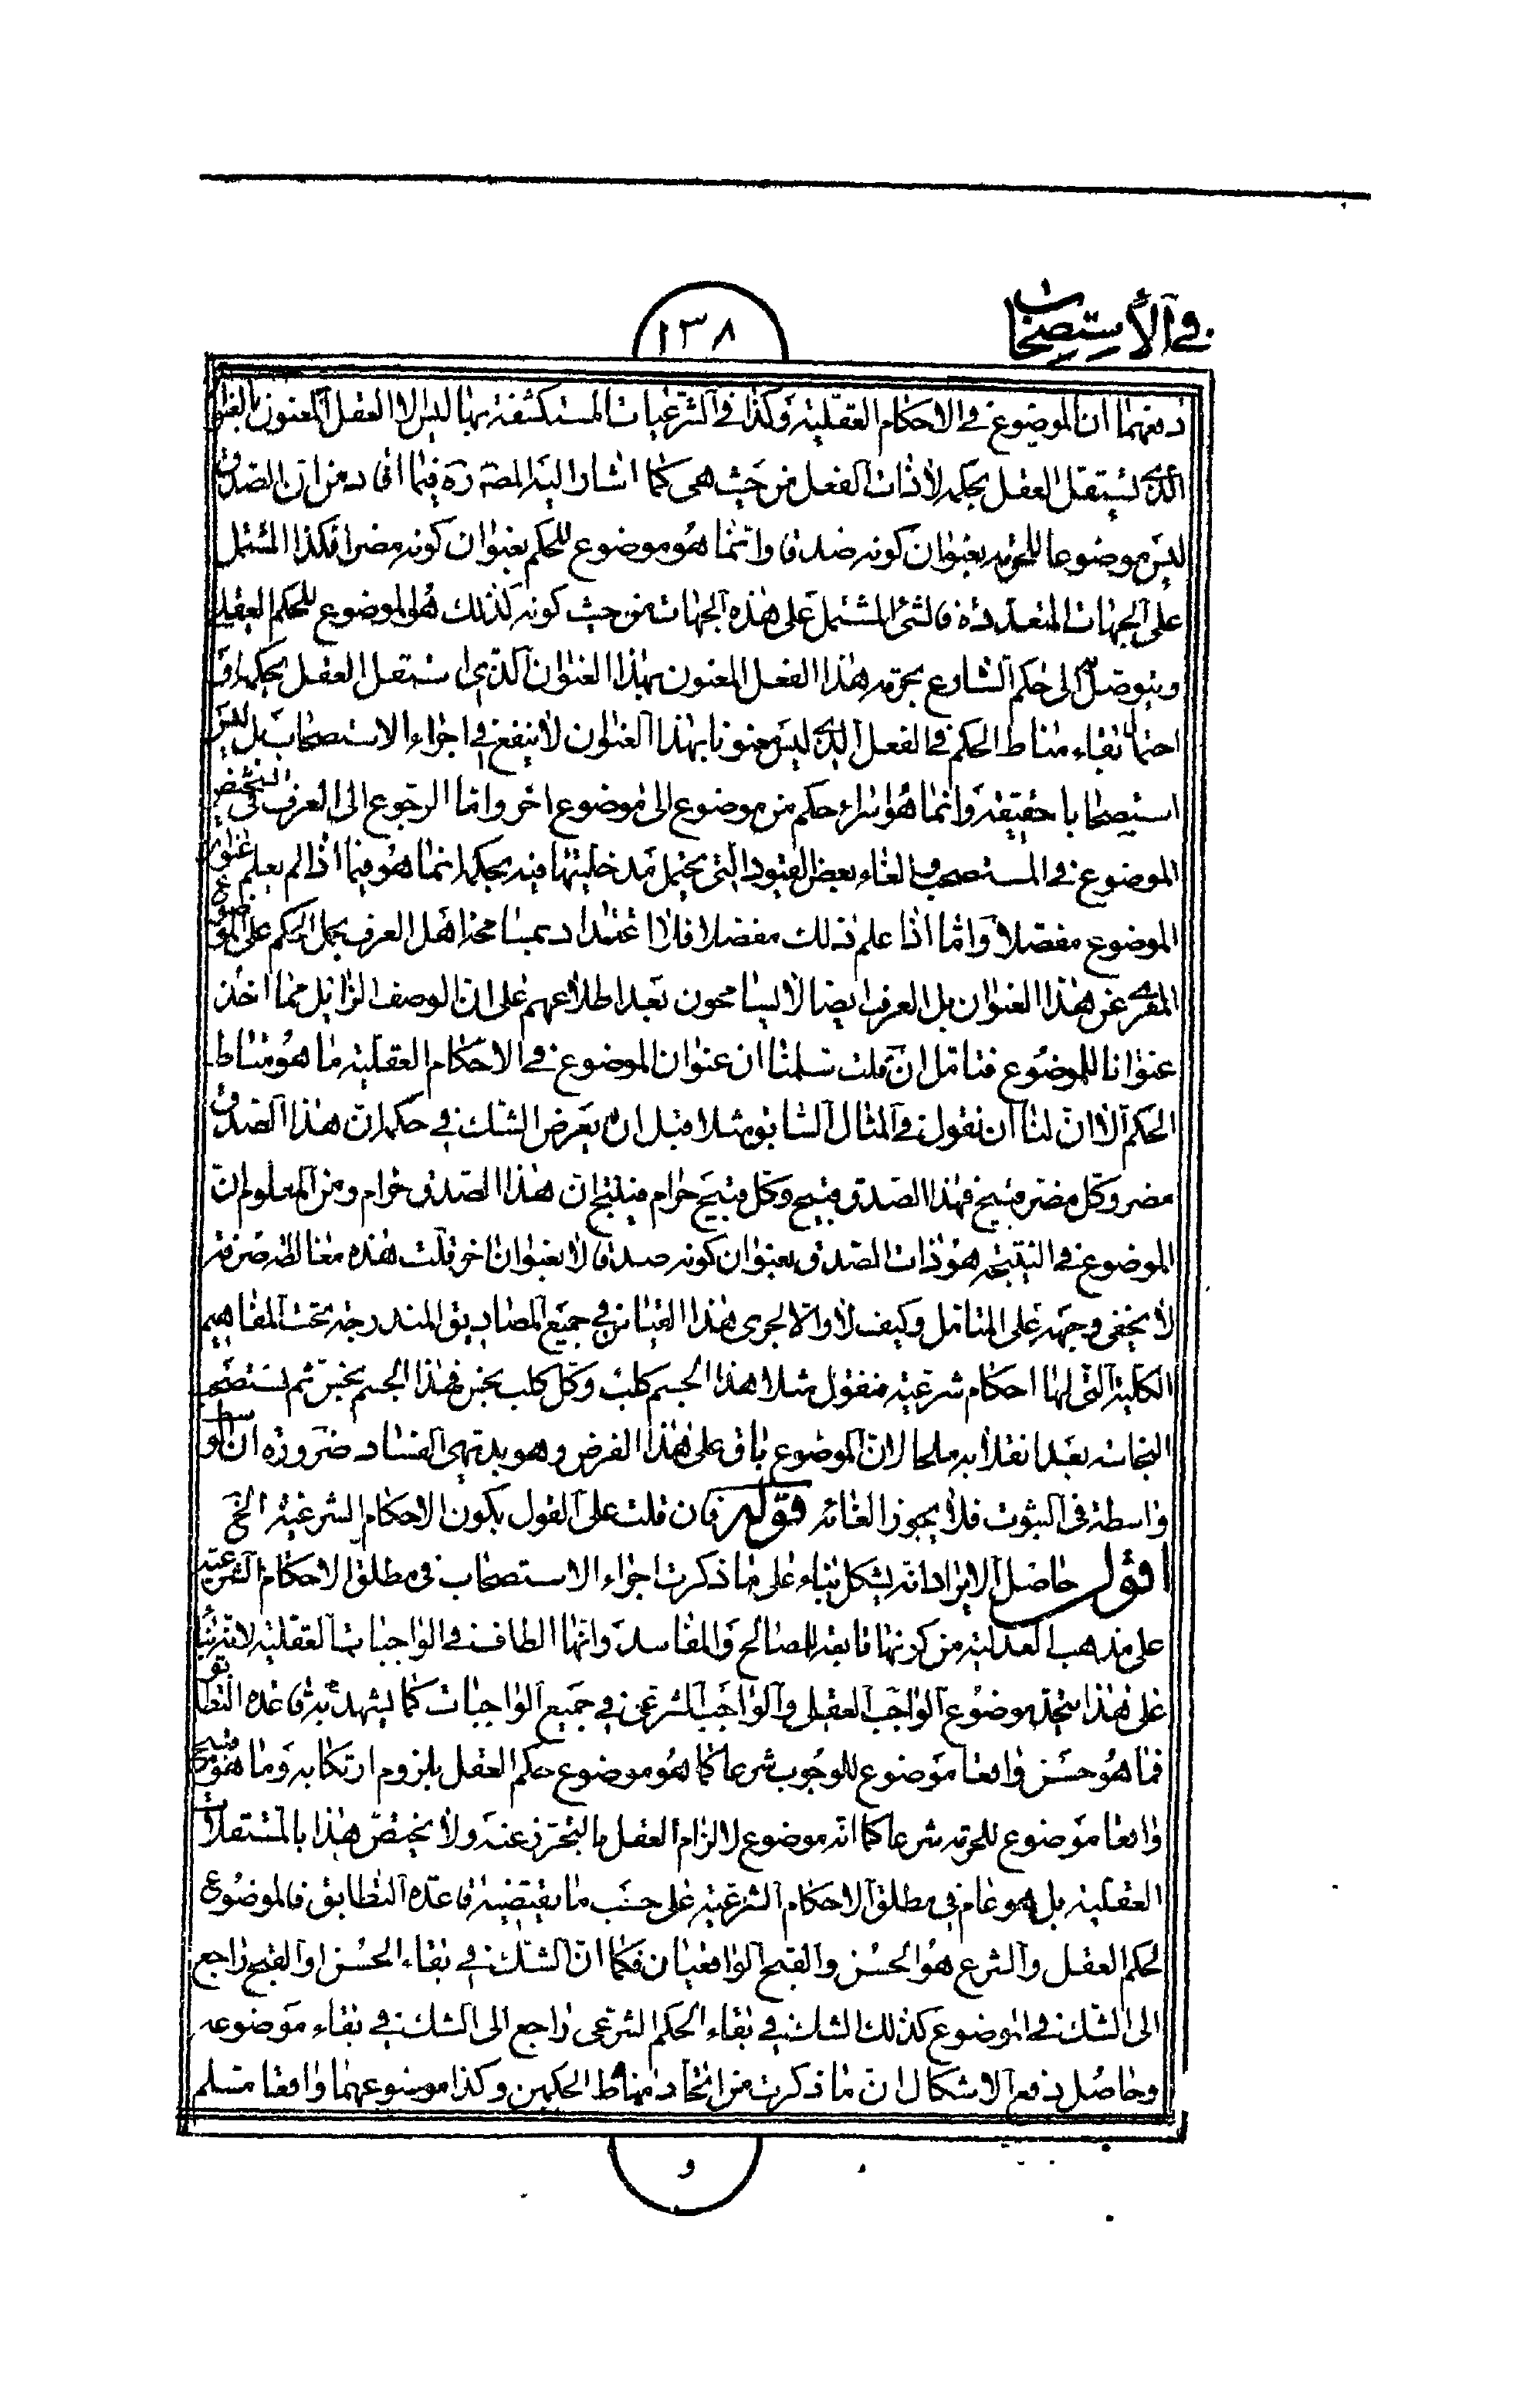 في الاستصحاب
١٣٨
دفعهما ان الموضوع في الاحكام العقلية وكذا في الشرعيات المستكشفة بها ليس الا الفعل المعنون بالعنوان
الذي يستقل العقل بحكمه لا ذات الفعل من حيث هي كما اشار اليه المصنف ره فيما افاده من ان الصدق
ليس موضوعا للحرمة بعنوان كونه صدقا وانما هو موضوع للحكم بعنوان كونه مضرا فكذا المشتمل
على الجهات المتعددة فالشئ المشتمل على هذه الجهات من حيث كونه كذلك هو الموضوع للحكم العقلي
ويتوصل الى حكم الشارع بحرمة هذا الفعل المعنون بهذا العنوان الذي استقل العقل بحكمه و
احتمال بقاء مناط الحكم في الفعل الذي ليس معنونا بهذا العنوان لا ينفع في اجراء الاستصحاب بل ليس
استصحابا حقيقة وانما هو اسراء حكم من موضوع الى موضوع اخر واما الرجوع الى العرف في تشخيص
الموضوع في المستصحب والغاء بعض القيود التي يحتمل مدخليتها فيه بحكمهم انما هو فيما اذا لم يعلم عنوان
الموضوع مفصلا واما اذا علم ذلك مفصلا فلا اعتداد بمسامحة اهل العرف بحمل الحكم على الموضوع
المعرى عن هذا العنوان بل العرف ايضا لا يسامحون بعد اطلاعهم على ان الوصف الزائل مما اخذ
عنوانا للموضوع فتامل ان قلت سلمنا ان عنوان الموضوع في الاحكام العقلية ما هو مناط
الحكم الا ان لنا ان نقول في المثال السابق مثلا قبل ان يعرض الشك في حكمه ان هذا الصدق
مضر وكل مضر قبيح فهذا الصدق قبيح وكل قبيح حرام فينتج ان هذا الصدق حرام ومن المعلوم ان
الموضوع في النتيجة هو ذات الصدق بعنوان كونه صدقا لا بعنوان اخر قلت هذه مغالطة صرفة
لا يخفى وجهه على المتامل وكيف لا والا لجرى هذا القياس في جميع المصاديق المندرجة تحت المفاهيم
الكلية التي لها احكام شرعية فنقول مثلا هذا الجسم كلب وكل كلب نجس فهذا الجسم نجس ثم نستصحب
النجاسة بعد انقلابه ملحا لان الموضوع باق على هذا الفرض وهو بديهي الفساد ضرورة ان الاوسط
واسطة في الثبوت فلا يجوز الغائه قوله فان قلت على القول بكون الاحكام الشرعية الخ
اقول حاصل الايراد انه يشكل بناء على ما ذكرت اجراء الاستصحاب في مطلق الاحكام الشرعية
على مذهب العدلية من كونها تابعة للمصالح والمفاسد وانها الطاف في الواجبات العقلية لانه بناء
على هذا يتحد موضوع الواجب العقلي والواجب الشرعي في جميع الواجبات كما يشهد به قاعدة التطابق
فما هو حسن واقعا موضوع للوجوب شرعا كما هو موضوع حكم العقل بلزوم ارتكابه وما هو قبيح
واقعا موضوع للحرمة شرعا كما انه موضوع لالزام العقل بالتحرز عنه ولا يختص هذا بالمستقلات
العقلية بل هو عام في مطلق الاحكام الشرعية على حسب ما يقتضيه قاعدة التطابق فالموضوع
لحكم العقل والشرع هو الحسن والقبح الواقعيان فكما ان الشك في بقاء الحسن او القبح راجع
الى الشك في الموضوع كذلك الشك في بقاء الحكم الشرعي راجع الى الشك في بقاء موضوعه
وحاصل دفع الاشكال ان ما ذكرت من اتحاد مناط الحكمين وكذا موضوعهما واقعا مسلم
و